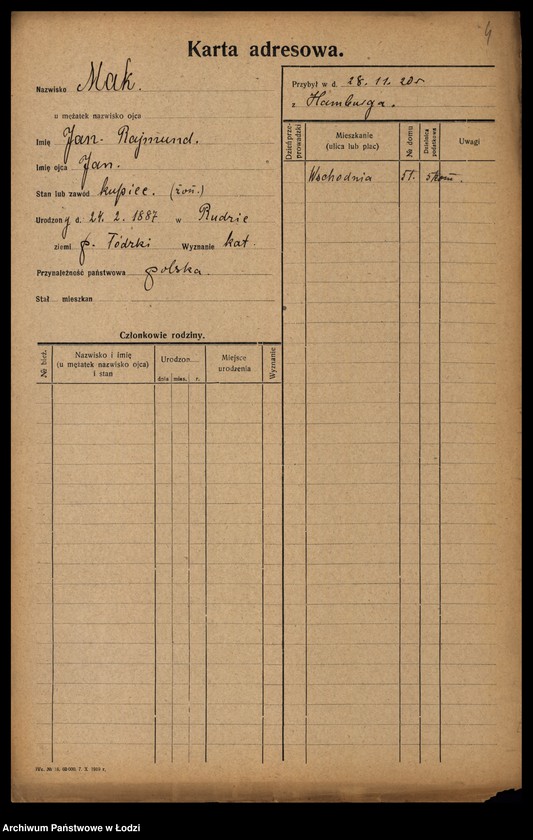 4
Karta adresowa.
Nazwisko Mak.
u mężatek nazwisko ojca
Imię Jan Rajmund.
Imię ojca Jan.
Stan lub zawód kupiec. (żon.)
Urodzony d. 24. 2. 1887 w Rudzie
ziemi p. Łódzki Wyznanie kat.
Przynależność państwowa polska.
Stał mieszkan
Przybył w d. 28. 11. 20 r
z Hamburga.
Dzień przeprowadzki
Mieszkanie
(ulica lub plac)
№ domu
Dzielnica podatkowa
Uwagi
Wschodnia 51. 5
Członkowie rodziny.
№ bież.
Nazwisko i imię
(u mężatek nazwisko ojca)
i stan
Urodzon
dnia mies. r.
Miejsce
urodzenia
Wyznanie
7. X.
Archiwum Państwowe w Łodzi